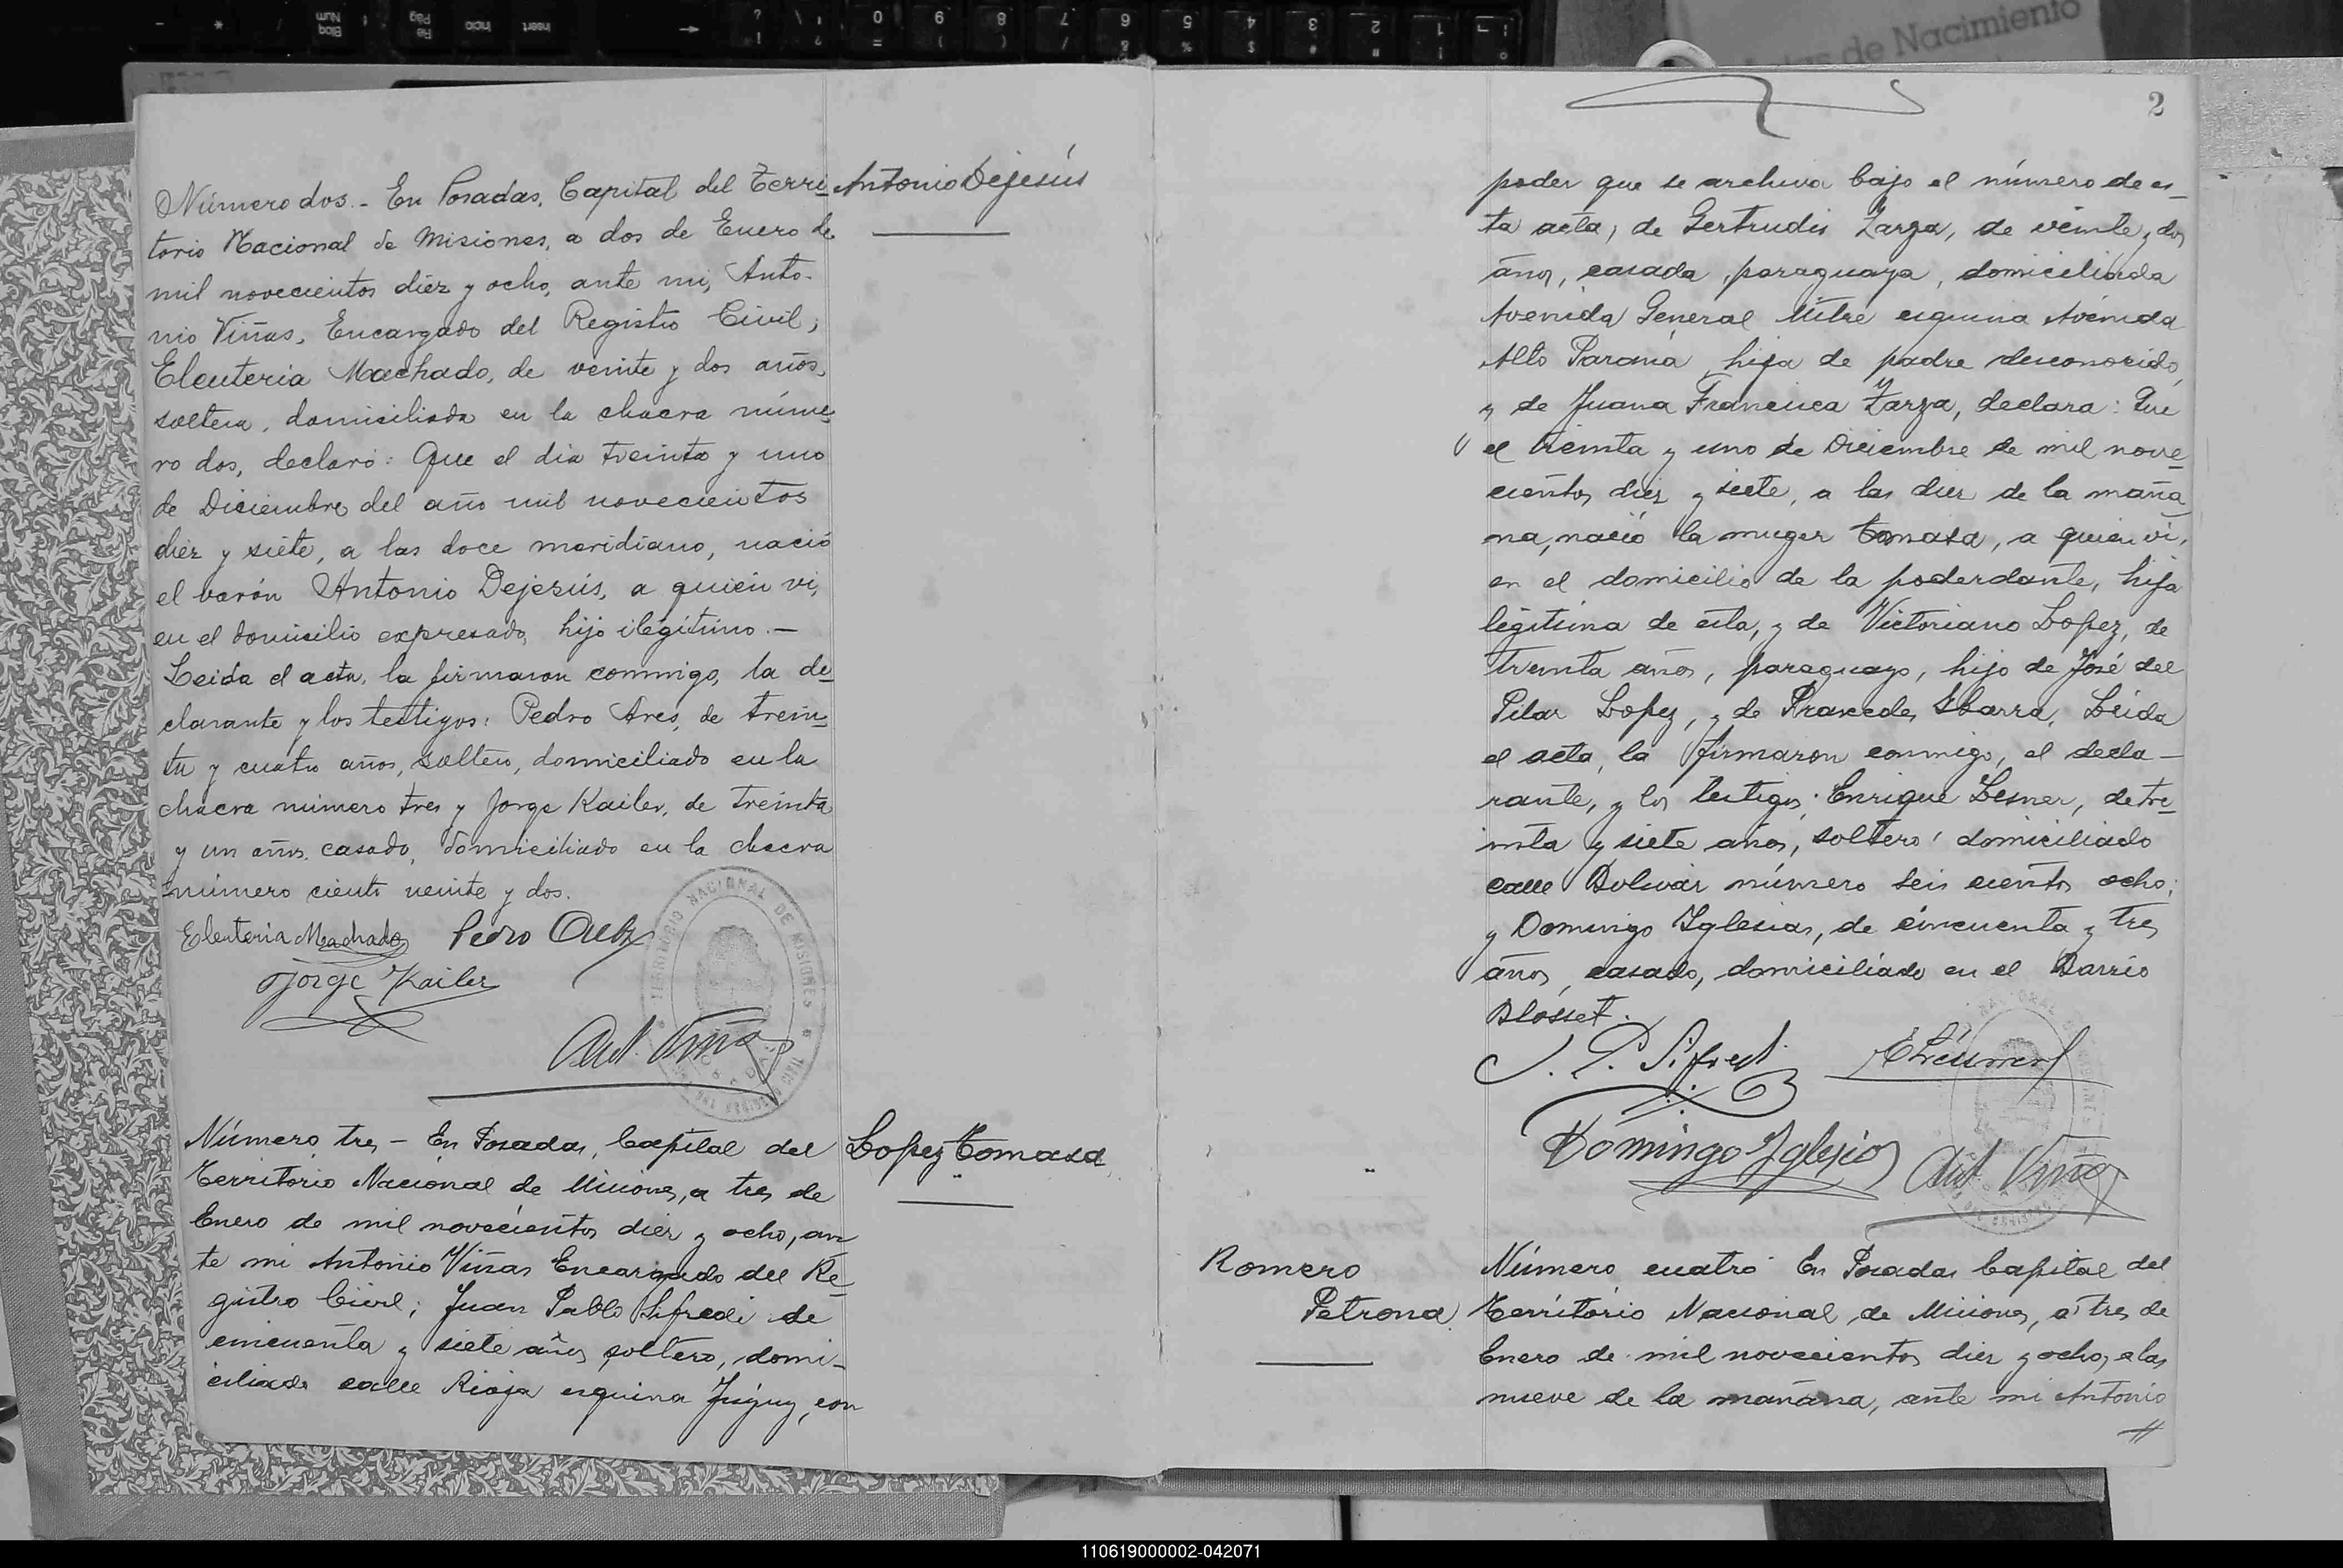 de Nacimiento
Número dos.- En Posadas, Capital del Terri-
torio Nacional de Misiones, a dos de Enero de
mil novecientos diez y ocho, ante mi, Anto-
nio Viñas, Encargado del Registro Civil;
Eleuteria Machado, de veinte y dos años,
soltera, domiciliada en la chacra núme-
ro dos, declaró: Que el dia treinta y uno
de Diciembre del año mil novecientos
diez y siete, a las doce meridiano, nació
el varón Antonio Dejesús, a quien vi,
en el domicilio expresado, hijo ilegítimo.-
Leida el acta, la firmaron conmigo, la de-
clarante y los testigos: Pedro Ares, de trein-
ta y cuatro años, soltero, domiciliado en la
chacra número tres y Jorge Kailer, de treinta
y un años, casado, domiciliado en la chacra
número ciento veinte y dos.
Antonio Dejesús
Eleuteria Machado Pedro
Jorge Kailer
Ant. Viñas
TERRITORIO NACIONAL DE MISIONES
Número tres - En Posadas, Capital del
Territorio Nacional de Misiones, a tres de
Enero de mil novecientos diez y ocho, an-
te mi Antonio Viñas Encargado del Re-
gistro Civil; Juan Pablo Sifredi de
cincuenta y siete años soltero, domi-
ciliado calle Rioja esquina Jujuy, con
Lopez Tomasa
2
poder que se archiva bajo el número de es-
ta acta, de Gertrudis Zarza, de veinte y dos
años, casada, paraguaya, domiciliada
Avenida General Mitre esquina Avenida
Alto Paraná, hija de padre desconocido,
y de Juana Francisca Zarza, declara: Que
el treinta y uno de Diciembre de mil nove-
cientos diez y siete, a las diez de la maña
na, nació la muger Tomasa, a quien vi,
en el domicilio de la poderdante, hija
legítima de esta, y de Victoriano Lopez, de
treinta años, paraguayo, hijo de José del
Pilar Lopez, y de Praxedes Ibarra, Leida
el acta, la firmaron conmigo, el decla-
rante, y los testigos: Enrique Lesner, de tre-
inta y siete años, soltero, domiciliado
calle Bolivar número seis cientos ocho;
y Domingo Iglesias, de cincuenta y tres
años, casado, domiciliado en el Barrio
Blosset.
J. P. Sifredi
Domingo Iglesias Ant Viñas
Romero
Petrona
Número cuatro En Posadas Capital del
Territorio Nacional de Misiones, a tres de
Enero de mil novecientos diez y ocho, a las
nueve de la mañana, ante mi Antonio
110619000002-042071